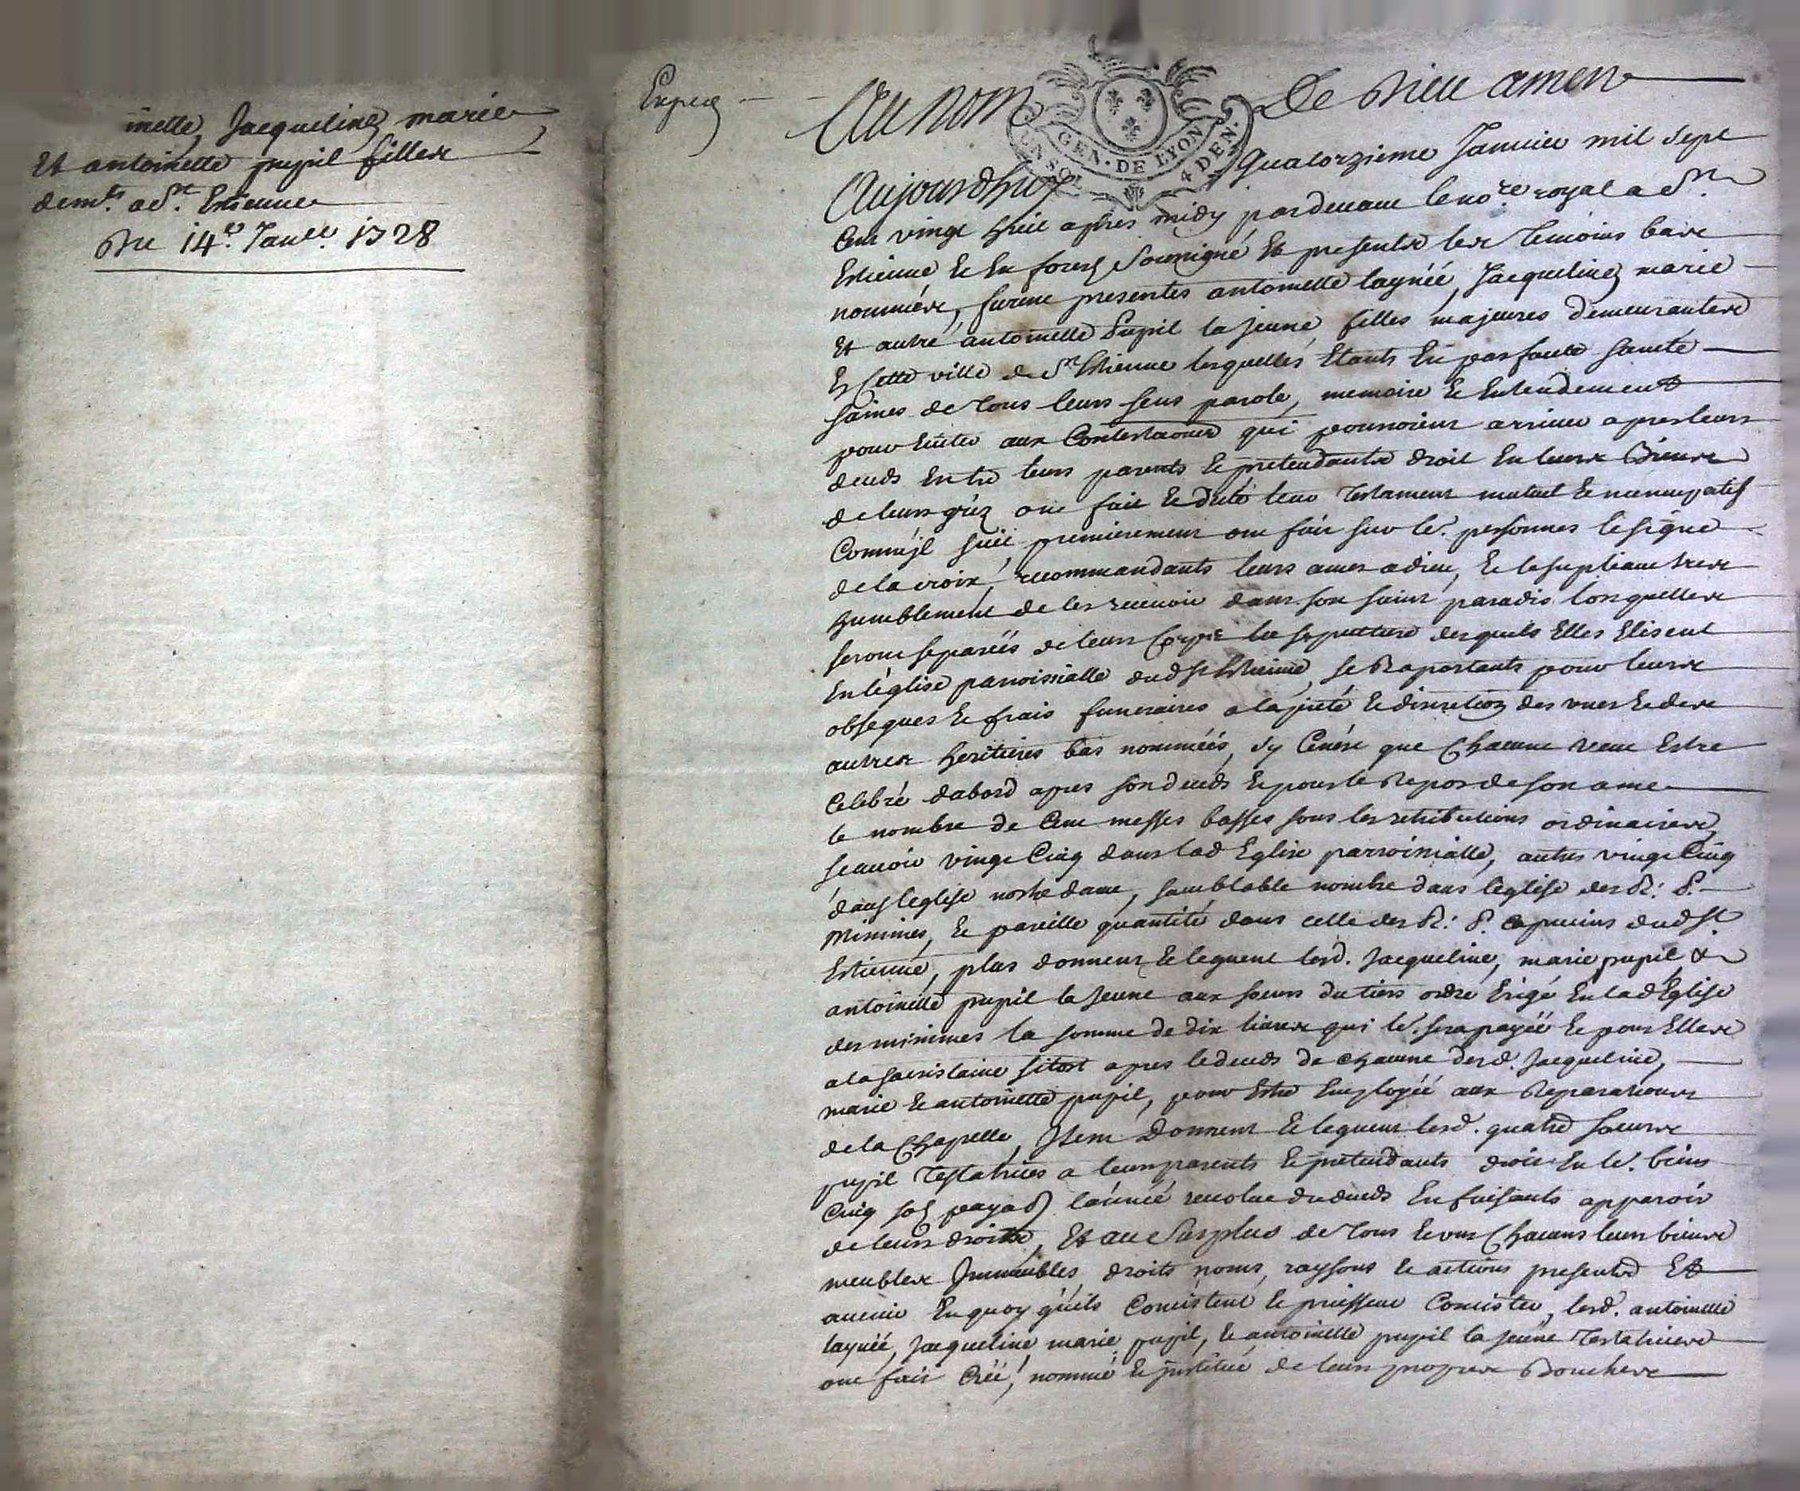 inette, Jacqueline, marie
Et antoinette pupil filles
demts. a St. Estienne
Du 14e. Janer. 1728
Exped
Au nom De Dieu amen
GEN · DE LYON
4 DEN.
Aujourdhuy quatorzieme Janvier mil sept
cent vingt huit apres midy pardevant le nore. royal a St.
Estienne En forest Soussigné Et presents les temoins bas
nommés, furent presentes antoinette laynée, Jacqueline, marie
Et autre antoinette Pupil la jeune filles majeures demeurantes
En Cette ville de St. Estienne lesquelles Etants En parfaite santé
saines de tous leurs sens parole, memoire Et Entendement
pour Eviter aux Contestations qui pourroient arriver apres leurs
deceds Entre leurs parents Et pretendants droit En leurs Biens
de leurs gréz ont fait Et dicté leur Testament mutuel Et nuncupatif
Comm'jl suit, premierement ont fait sur le. personnes le signe
de la croix, recommandants leurs ames a dieu, Et le supliant tres
humblement de les recevoir dans son saint paradis lorsquelles
seront separées de leurs Corps la sepulture desquels Elles Elisent
En l'église parroissialle dud St Estienne, se Raportants pour leurs
obseques Et frais funeraires a la pieté Et discretion des unes Et des
autres heritieres bas nommées, sy Cen'est que Chacune veut Estre
Celebré dabord apres son deceds Et pour le Repos de son ame
le nombre de Cent messes basses sous les retributions ordinaires,
scavoir vingt Cinq dans lad Eglise parroissialle, autres vingt Cinq
dans leglise nostre dame, semblable nombre dans l'eglise des R: P.
Minimes, Et pareille quantité dans celle des R: P. Capucins dud St.
Estienne, plus donnent Et leguent lesd. Jacqueline, marie pupil &
antoinette pupil la jeune aux soeurs du tiers ordre Erigé En lad Eglise
des minimes la somme de dix livres qui le. sera payée Et pour Elles
a la sacristaine sitost apres le deceds de chacune desd. Jacqueline,
marie Et antoinette pupil, pour Estre Employée aux Reparations
de la Chapelle, Item Donnent Et leguent lesd. quatre soeurs
pupil Testatrices a leurs parents Et pretendants droit En le. biens
Cinq sols l'année revolue du deceds En faisants apparoir
de leurs droits, Et au Surplus de tous Et uns Chacuns leurs biens
meubles Immeubles, droits noms, raysons Et actions presents Et
avenir En quoy qu'ils Consistent Et puissent Consister, lesd. antoinette
laynée, Jacqueline, marie pupil, Et antoinette pupil la jeune Testatrices
ont fait Créé, nommé Et jnstitué de leurs propres Bouches